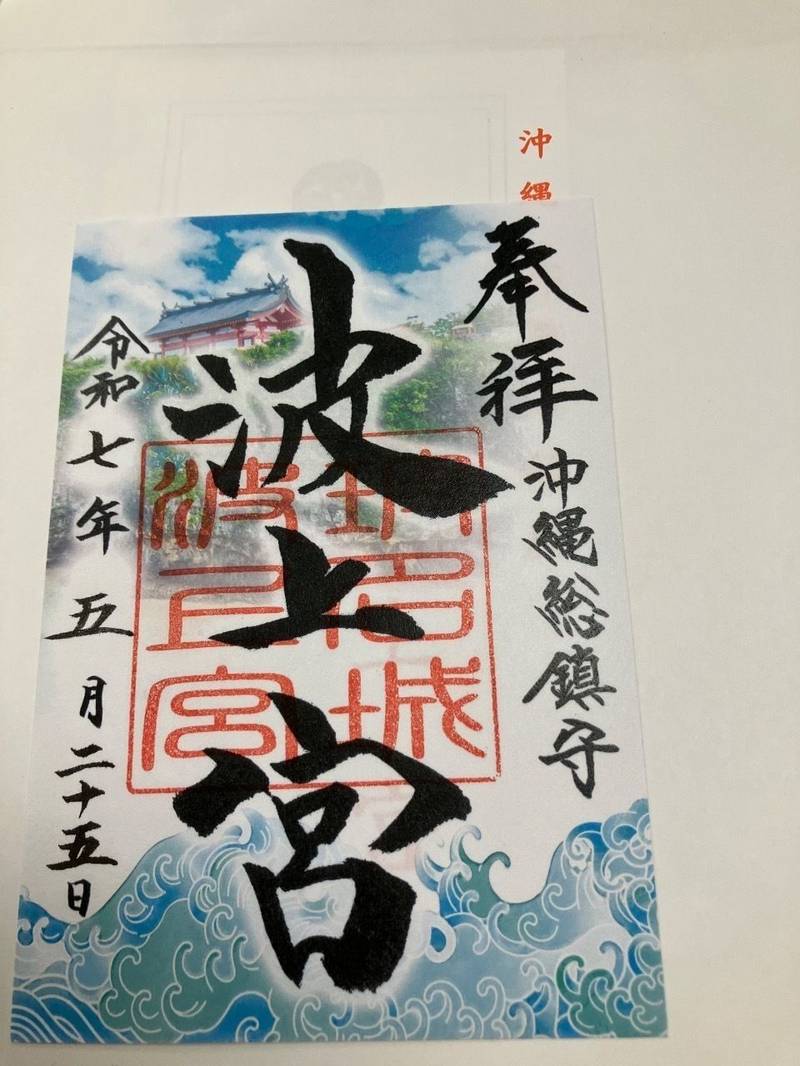 沖縄
奉拝
沖縄総鎮守
波上宮
波上宮
令和七年五月二十五日